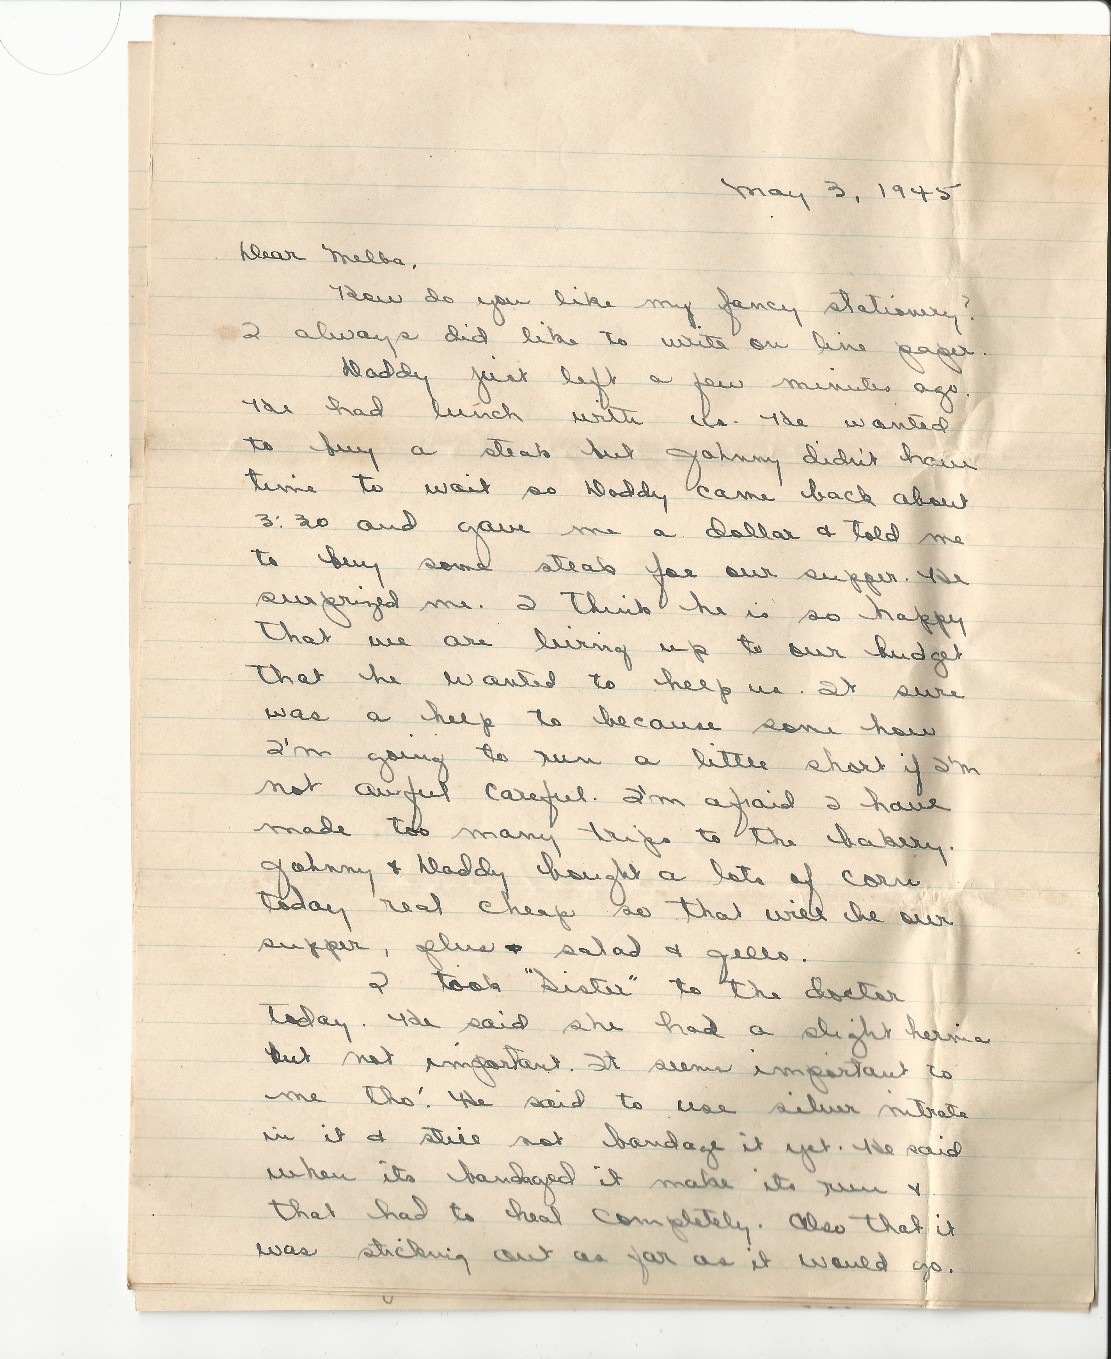 May 3, 1945
Dear Melba,
How do you like my fancy stationery?
I always did like to write on line paper.
Daddy just left a few minutes ago.
He had lunch with us. He wanted
to buy a steak but Johnny didn't have
time to wait so Daddy came back about
3:30 and gave me a dollar & told me
to buy some steak for our supper. He
surprized me. I think he is so happy
that we are living up to our budget
that he wanted to help us. It sure
was a help to because some how
I'm going to run a little short if I'm
not awful careful. I'm afraid I have
made too many trips to the bakery.
Johnny & Daddy bought a lots of corn
today real cheap so that will be our
supper, plus salad & jello.
I took "Sister" to the doctor
today. He said she had a slight hernia
but not important. It seems important to
me tho'. He said to use silver nitrate
in it & still not bandage it yet. He said
when its bandaged it make its run &
that had to heal completely. Also that it
was sticking out as far as it would go.